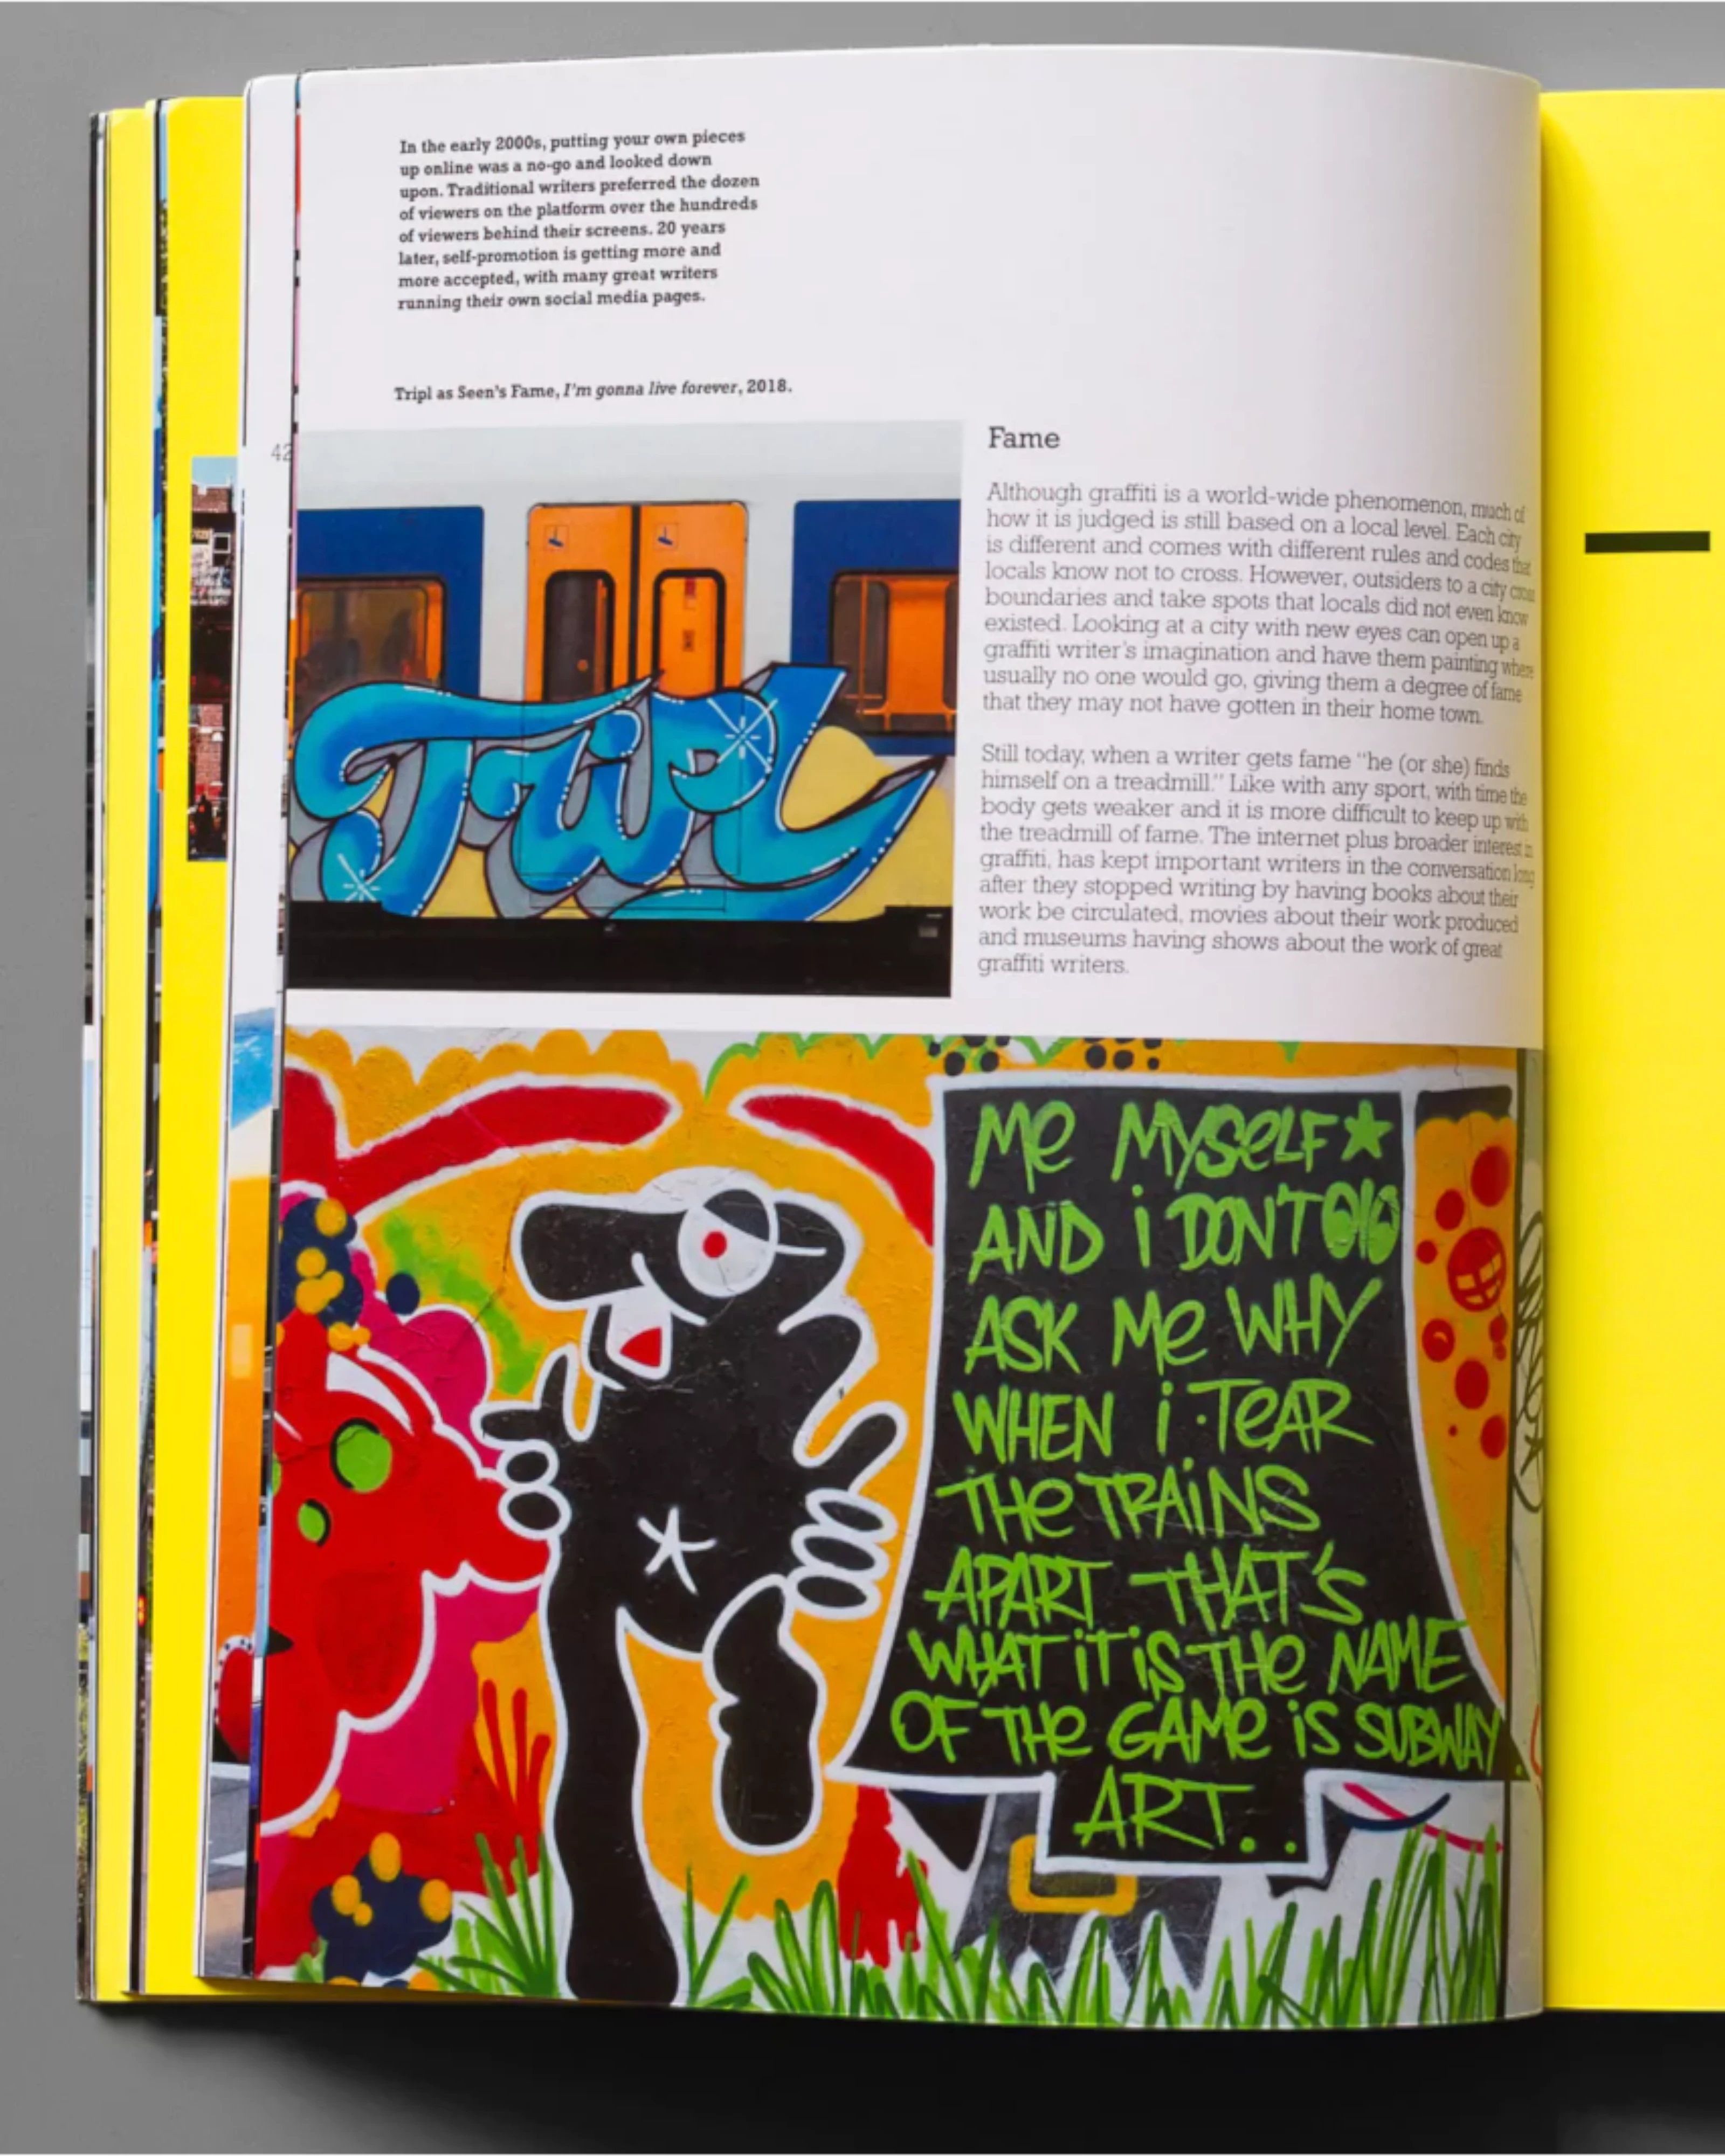 In the early 2000s, putting your own pieces
up online was a no-go and looked down
upon. Traditional writers preferred the dozen
of viewers on the platform over the hundreds
of viewers behind their screens. 20 years
later, self-promotion is getting more and
more accepted, with many great writers
running their own social media pages.
Tripl as Seen's Fame, I'm gonna live forever, 2018.
42
TRiPL
Fame
Although graffiti is a world-wide phenomenon, much of
how it is judged is still based on a local level. Each city
is different and comes with different rules and codes that
locals know not to cross. However, outsiders to a city cross
boundaries and take spots that locals did not even know
existed. Looking at a city with new eyes can open up a
graffiti writer's imagination and have them painting where
usually no one would go, giving them a degree of fame
that they may not have gotten in their home town.
Still today, when a writer gets fame "he (or she) finds
himself on a treadmill." Like with any sport, with time the
body gets weaker and it is more difficult to keep up with
the treadmill of fame. The internet plus broader interest in
graffiti, has kept important writers in the conversation long
after they stopped writing by having books about their
work be circulated, movies about their work produced
and museums having shows about the work of great
graffiti writers.
Me MYSeLF
AND i DON'T
ASK Me WHY
WHEN i TeAR
THe TRAiNS
APART THAT'S
WHAT iT iS THe NAMe
OF THe GAMe iS SUBWAY
ART..